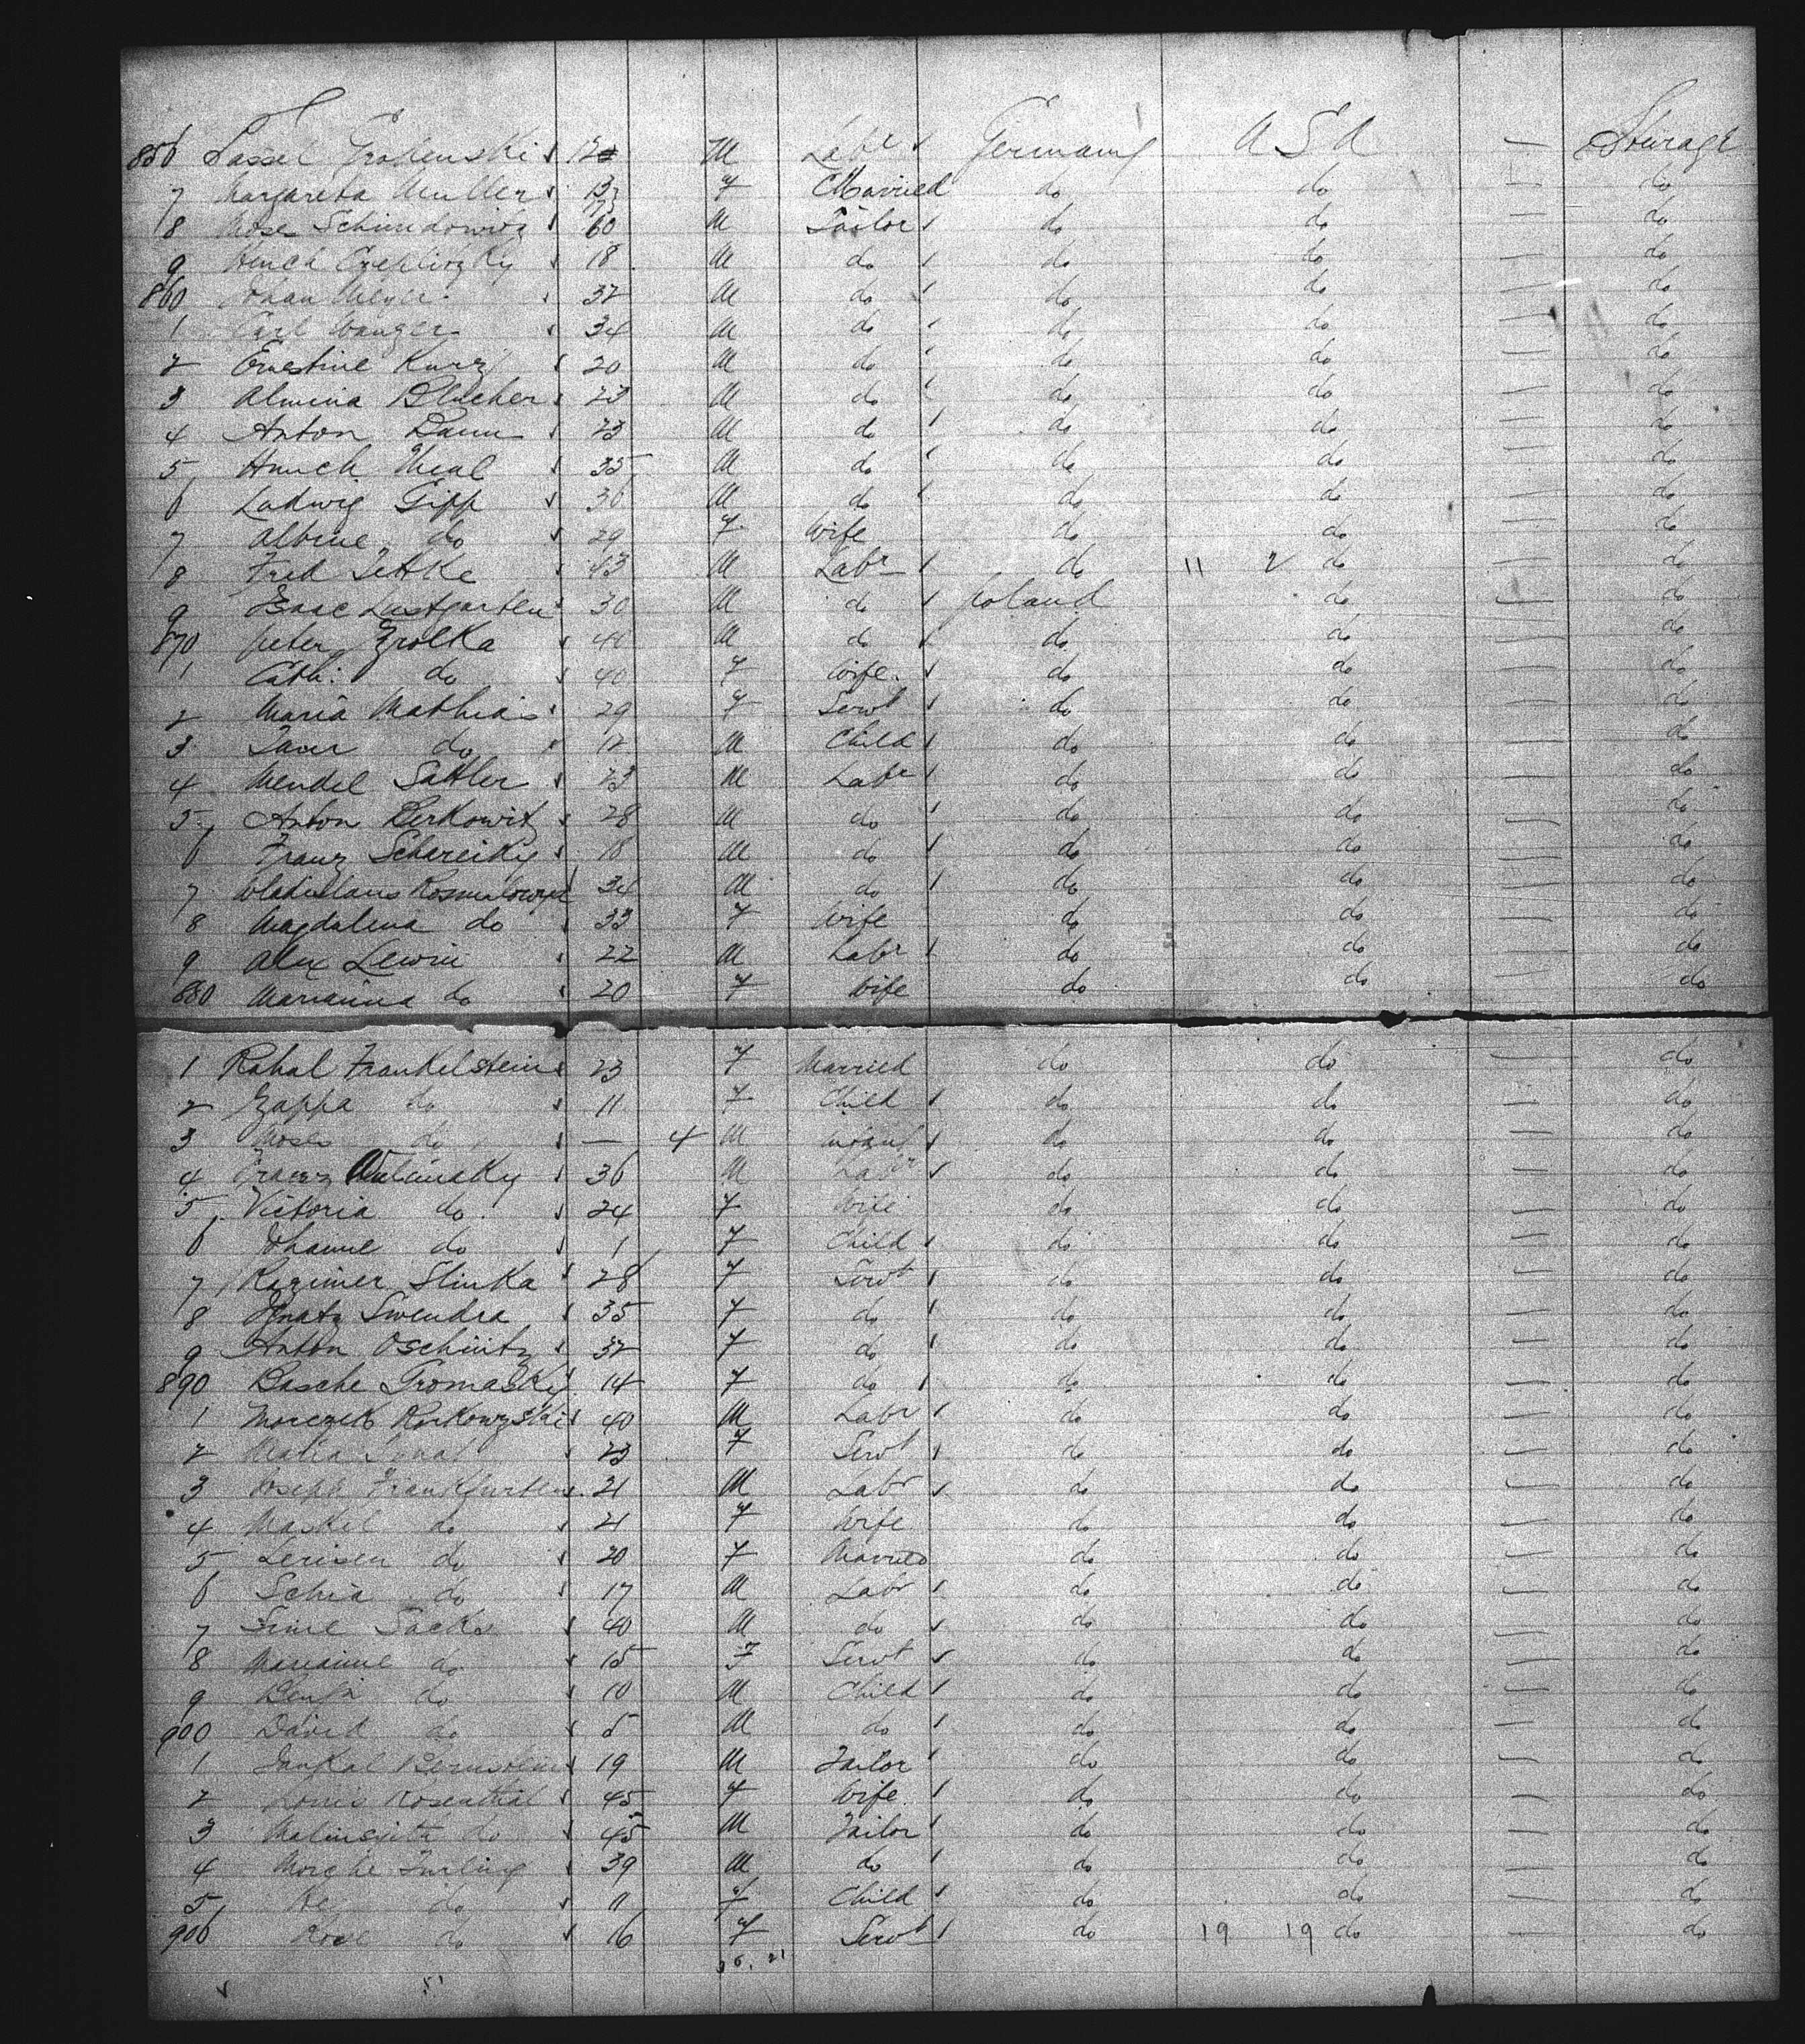 856 Grokenski M Labr Germany U S A — Steerage
7 Margareta Muller F Married do do — do
8 Mose Schimdowitz 60 M Tailor do do — do
9 18 M do do do — do
860 Johan Meyer 32 M do do do — do
1 Carl Wanger 34 M do do do — do
2 Ernestine Kurz 20 M do do do — do
3 Almina Blucher 23 M do do do — do
4 Anton Damm 23 M do do do — do
5 35 M do do do — do
6 Ludwig Gipp 36 M do do do — do
7 Albine do 29 F Wife do do — do
8 Fred Tettke 43 M Labr do 11 2 do — do
9 Isaac Lustgarten 30 M do Poland do — do
870 Peter Zrolka 40 M do do do — do
1 Cath: do 40 F Wife do do — do
2 Maria Mathias 29 F Servt do do — do
3 do 12 M Child do do — do
4 Mendel Sattler 23 M Labr do do — do
5 Anton Berkowitz 28 M do do do — do
6 Franz Schereiky 18 M do do do — do
7 Wladislaus 34 M do do do — do
8 Magdalena do 33 F Wife do do — do
9 Alex Lewin 22 M Labr do do — do
880 Marianna do 20 F Wife do do — do
1 Rahal Frankelstein 23 F Married do do — do
2 Zappa do 11 F Child do do — do
3 Moses do — 4 M Infant do do — do
4 Franz 36 M Labr do do — do
5 Victoria do 24 F Wife do do — do
6 Johanne do 1 F Child do do — do
7 Kazimer Slinka 28 F Servt do do — do
8 Ignatz Swendra 35 F do do do — do
9 Anton Oschintz 32 F do do do — do
890 Basche Gromasky 14 F do do do — do
1 40 M Labr do do — do
2 Maria 23 F Servt do do — do
3 Joseph Frankfurter 21 M Labr do do — do
4 Maskel do 21 F Wife do do — do
5 do 20 F Married do do — do
6 Schia do 17 M Labr do do — do
7 Sacks 40 M do do do — do
8 Marianne do 15 F Servt do do — do
9 Benj do 10 M Child do do — do
900 David do 5 M do do do — do
1 Jankal Bernstein 19 M Tailor do do — do
2 Louis Rosenthal 45 F Wife do do — do
3 do 45 M Tailor do do — do
4 39 M do do do — do
5 do 11 F Child do do — do
906 Rose do 16 F Servt do 19 19 do — do